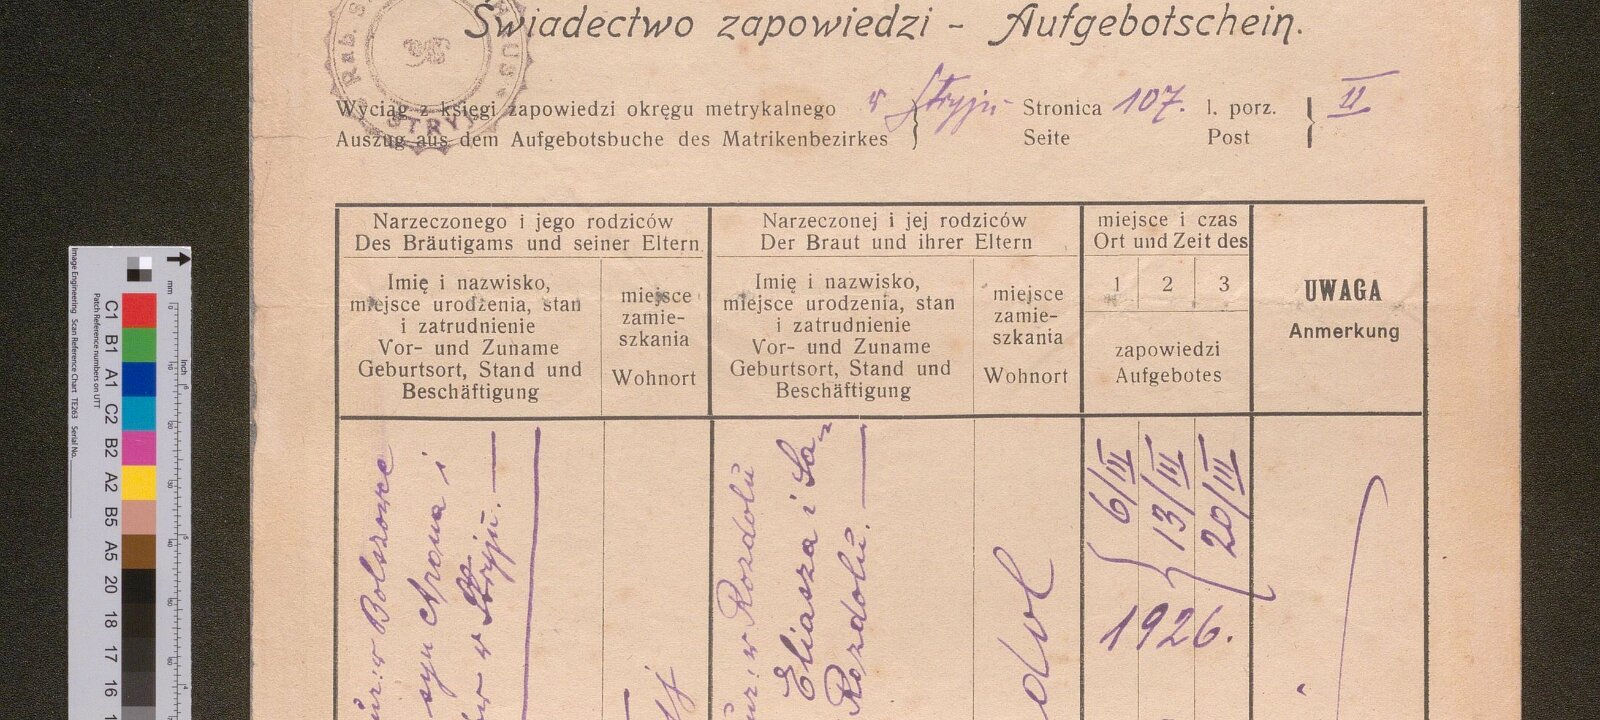 Świadectwo zapowiedzi - Aufgebotschein.
Rab.
US
STRYJ
Wyciąg z księgi zapowiedzi okręgu metrykalnego
Auszug aus dem Aufgebotsbuche des Matrikenbezirkes
w Stryju
Stronica 107. l. porz. II
Seite Post
Narzeczonego i jego rodziców
Des Bräutigams und seiner Eltern
Imię i nazwisko,
miejsce urodzenia, stan
i zatrudnienie
Vor- und Zuname
Geburtsort, Stand und
Beschäftigung
miejsce
zamie-
szkania
Wohnort
Narzeczonej i jej rodziców
Der Braut und ihrer Eltern
Imię i nazwisko,
miejsce urodzenia, stan
i zatrudnienie
Vor- und Zuname
Geburtsort, Stand und
Beschäftigung
miejsce
zamie-
szkania
Wohnort
miejsce i czas
Ort und Zeit des
1 2 3
zapowiedzi
Aufgebotes
UWAGA
Anmerkung
ur: w Bolszowce
syn Arona i
w Stryju.
ur: w Rozdołu
Eliasza i Sa
Rozdołu.
doł
6/III
13/III
20/III
1926.
Image Engineering Scan Reference Chart TE263 Serial No.
Patch Reference numbers on UTT
mm
inch
C1 B1 A1 C2 B2 A2 B5 A5 20 18 17 16